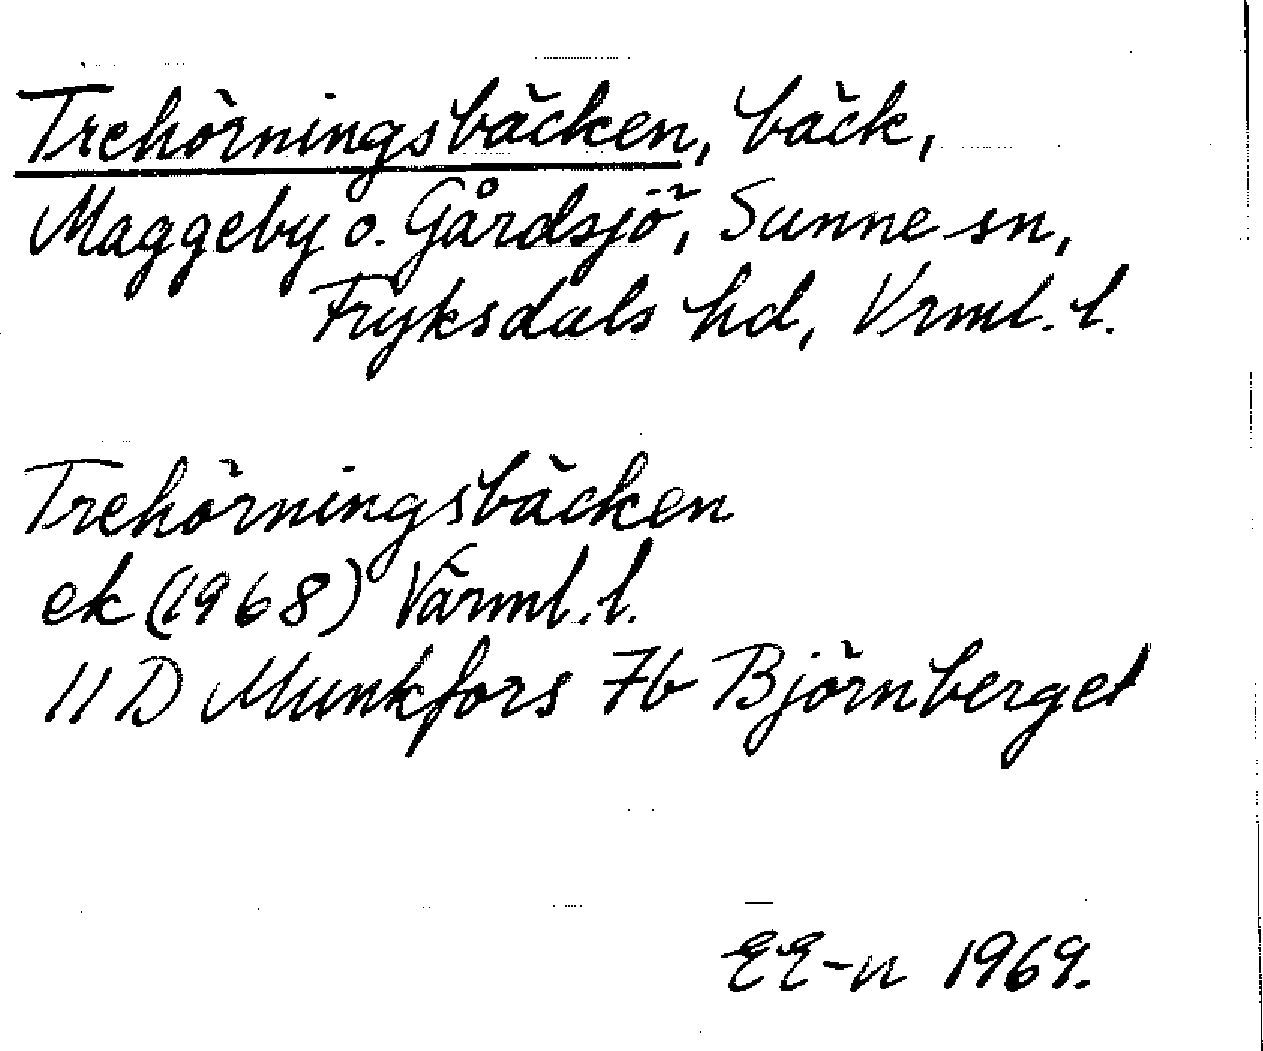 Trehörningsbäcken, bäck,
Maggeby o. Gårdsjö, Sunne sn,
Fryksdals hd, Vrml. l.
Trehörningsbäcken
ek (1968) Värml. l.
11 D Munkfors 7b Björnberget
EE-n 1969.